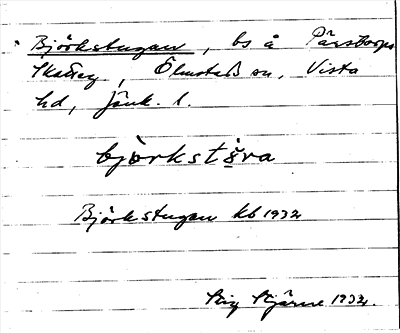 Björkstugan, bs å Pärstorps
skatteg, Ölmstads sn, Vista
hd, Jönk. l.
björkstŭ̀va
Björkstugan kb 1932
Stig Stjärne 1932.